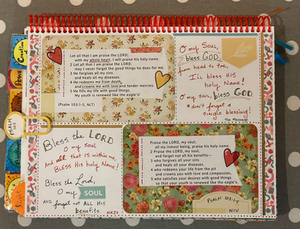 Let all that I am praise the LORD;
with my whole heart, I will praise his holy name.
2 Let all that I am praise the LORD;
may I never forget the good things he does for me.
3 He forgives all my sins
and heals all my diseases.
4 He redeems me from death
and crowns me with love and tender mercies.
5 He fills my life with good things.
My youth is renewed like the eagle's!
(Psalm 103:1-5, NLT)
O my Soul,
bless GOD
from head to toe,
I'll bless HIS
holy Name!
O my soul, bless GOD
don't forget a
single blessing!
Bless the LORD
O my soul
And all that is within me,
Bless His holy Name!
Bless the Lord,
O my SOUL
and forget not ALL HIS
benefits
Praise the LORD, my soul;
all my inmost being, praise his holy name.
2 Praise the LORD, my soul,
and forget not all his benefits—
3 who forgives all your sins
and heals all your diseases,
4 who redeems your life from the pit
and crowns you with love and compassion,
5 who satisfies your desires with good things
so that your youth is renewed like the eagle's.
PSALM 103:1-5
NIV